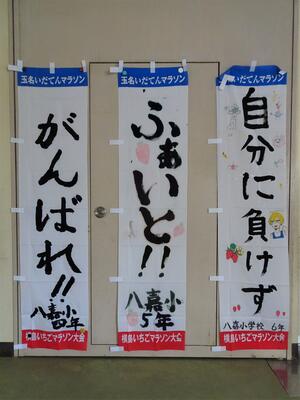 玉名いだてんマラソン
がんばれ!!
八嘉小
四年
横島いちごマラソン大会
玉名いだてんマラソン
ふぁいと!!
八嘉小
5年
横島いちごマラソン大会
玉名いだてんマラソン
自分に負けず
八嘉小学校 6年
横島いちごマラソン大会